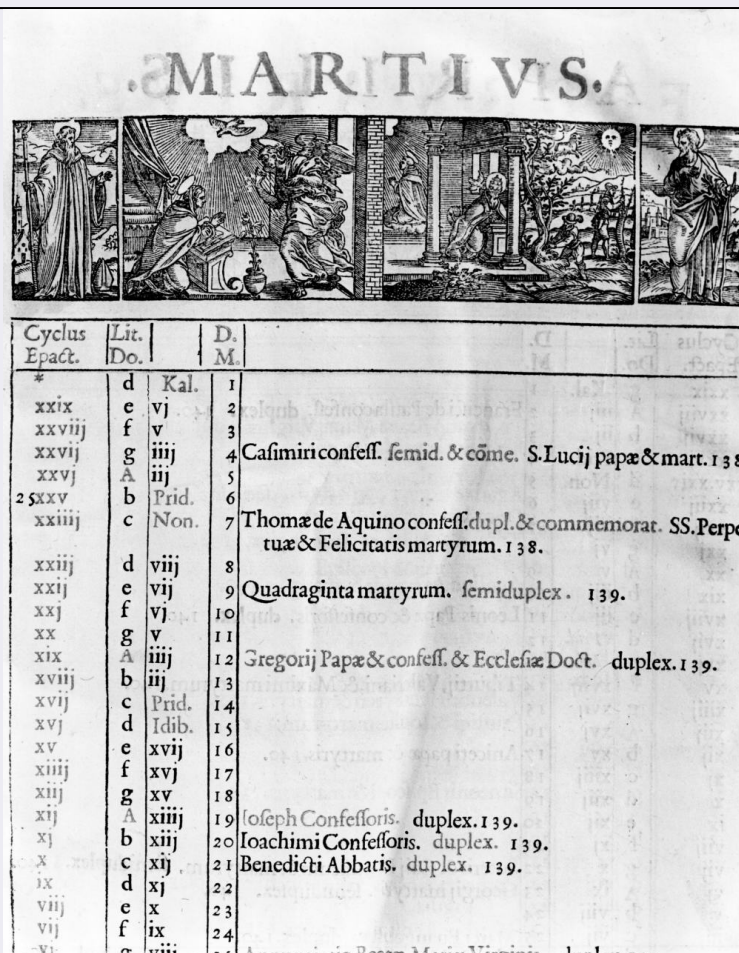 MARTIVS.
Cyclus Epact. Lit. Do. D. M.
* d Kal. 1
xxix e vj 2
xxviij f v 3
xxvij g iiij 4 Casimiri confess. semid. & cōme. S. Lucij papæ & mart. 138
xxvj A iij 5
25xxv b Prid. 6
xxiiij c Non. 7 Thomæ de Aquino confess. dupl. & commemorat. SS. Perpe
tuæ & Felicitatis martyrum. 138.
xxiij d viij 8
xxij e vij 9 Quadraginta martyrum. semiduplex. 139.
xxj f vj 10
xx g v 11
xix A iiij 12 Gregorij Papæ & confess. & Ecclesiæ Doct. duplex. 139.
xviij b iij 13
xvij c Prid. 14
xvj d Idib. 15
xv e xvij 16
xiiij f xvj 17
xiij g xv 18
xij A xiiij 19 Ioseph Confessoris. duplex. 139.
xj b xiij 20 Ioachimi Confessoris. duplex. 139.
x c xij 21 Benedicti Abbatis. duplex. 139.
ix d xj 22
viij e x 23
vij f ix 24